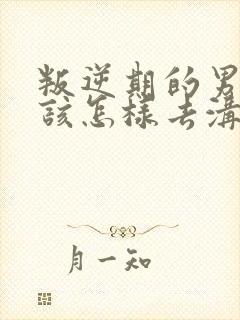 叛逆期的男
该怎样去溝
月一知